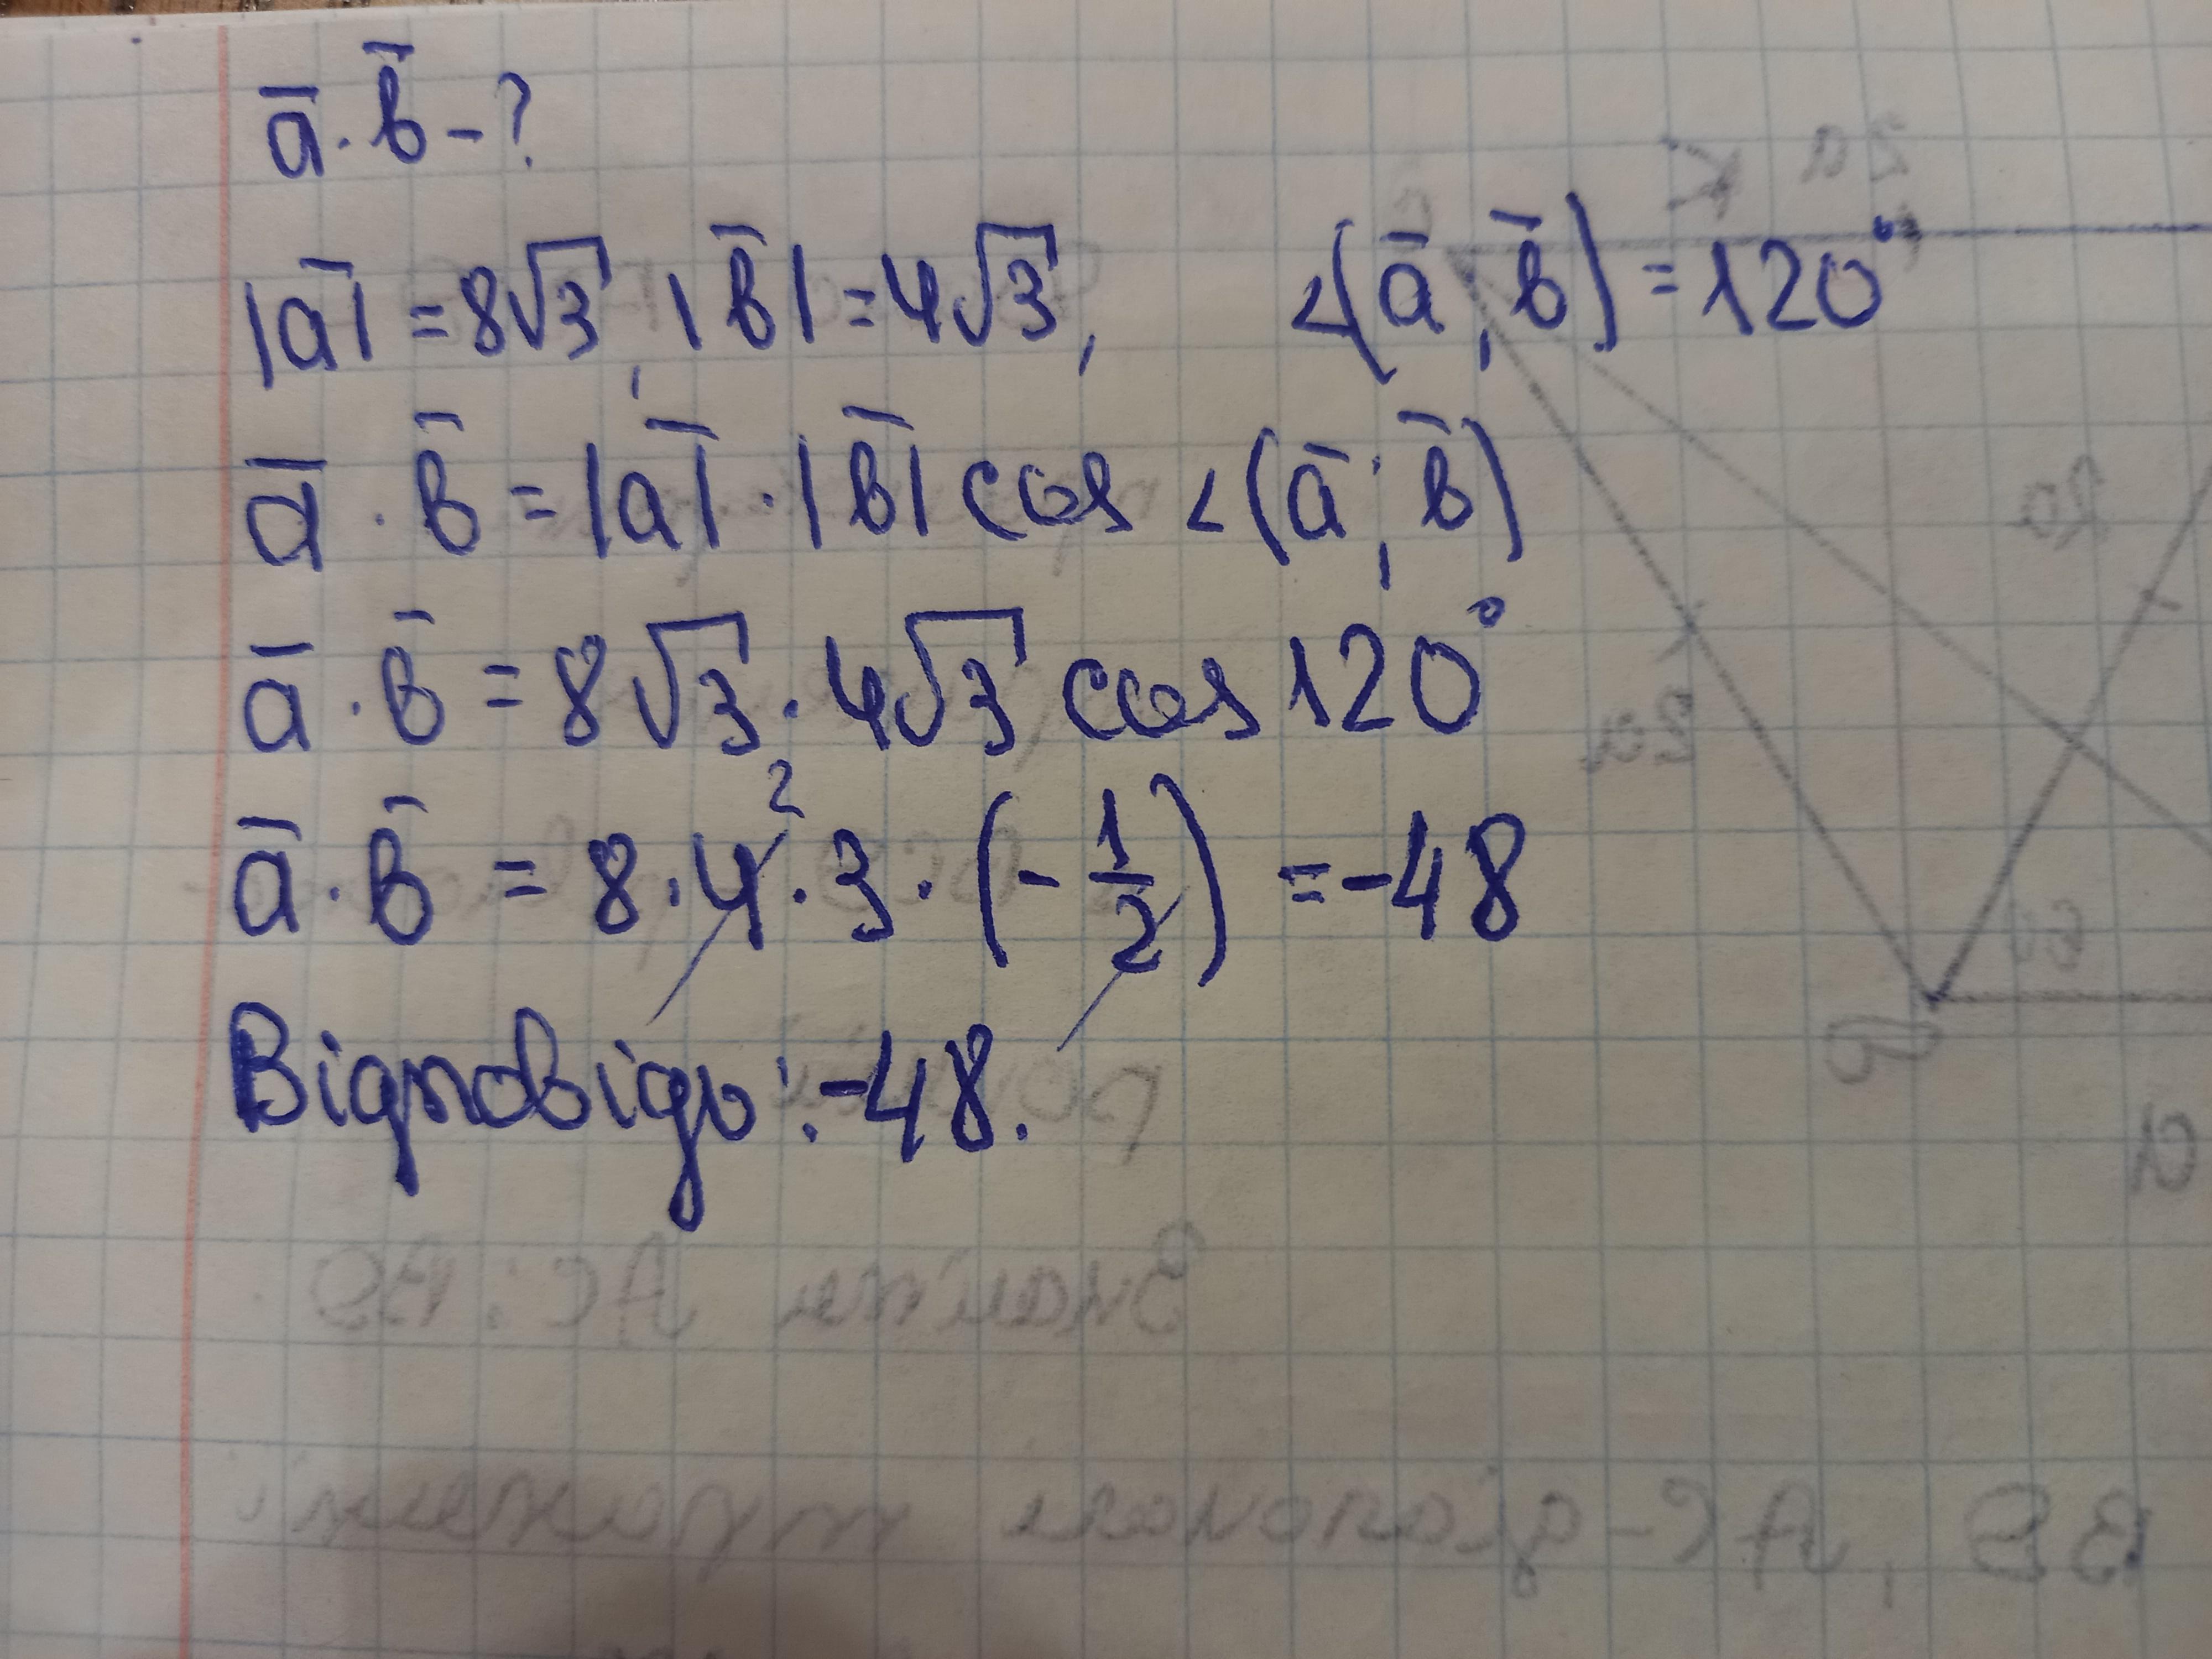 a̅ · b̅ - ?
|a̅| = 8√3, |b̅| = 4√3, <(a̅, b̅) = 120°
a̅ · b̅ = |a̅| · |b̅| cos <(a̅; b̅)
a̅ · b̅ = 8√3 · 4√3 cos 120°
a̅ · b̅ = 8 · 4² · 3 · (-1/2) = -48
Відповідь: -48.